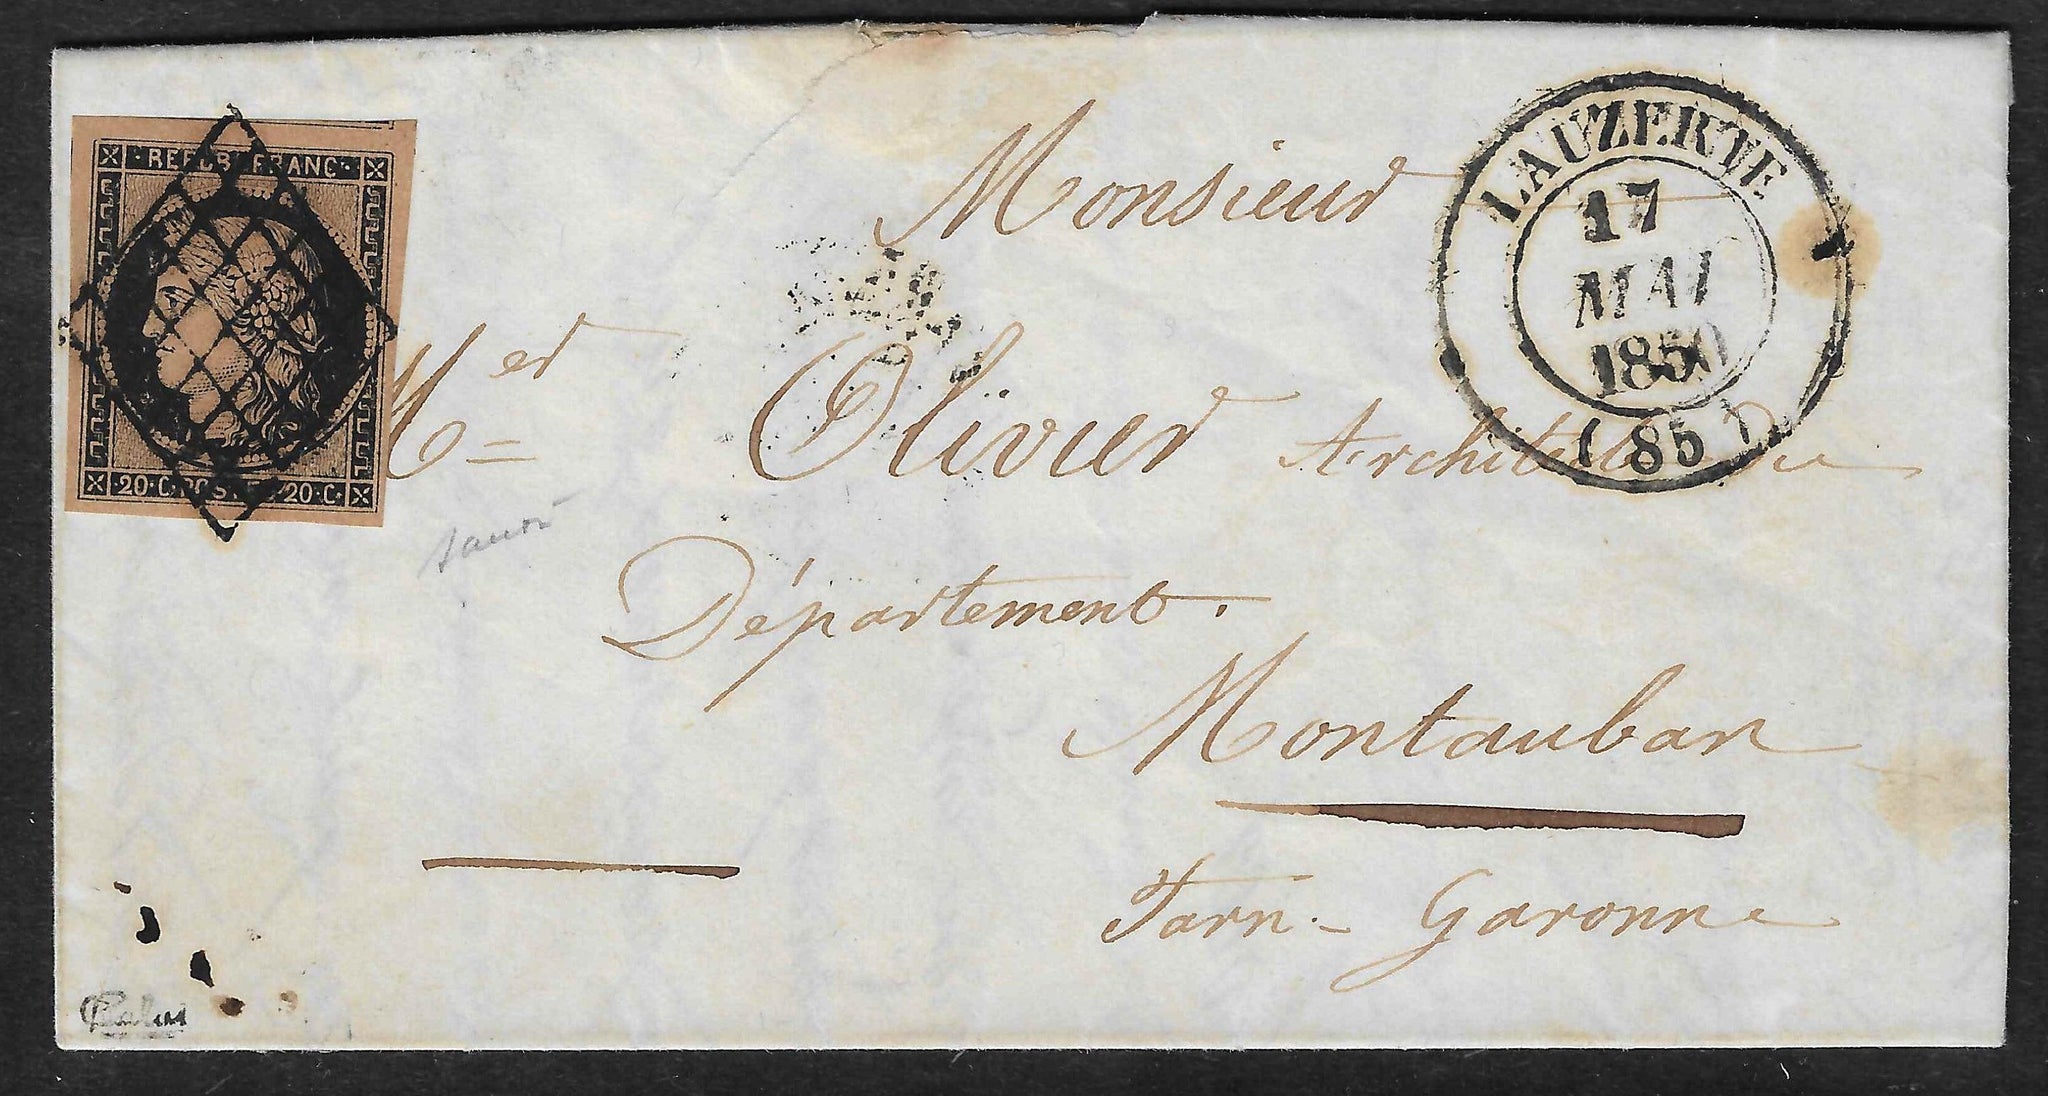 REPUB. FRANC
20·C·POSTES·20·C·
LAUZERTE
17
MAI
1850
(85)
Monsieur
Mer Olivier Architecte Du
Département.
Montauban
Tarn - Garonne
Calves